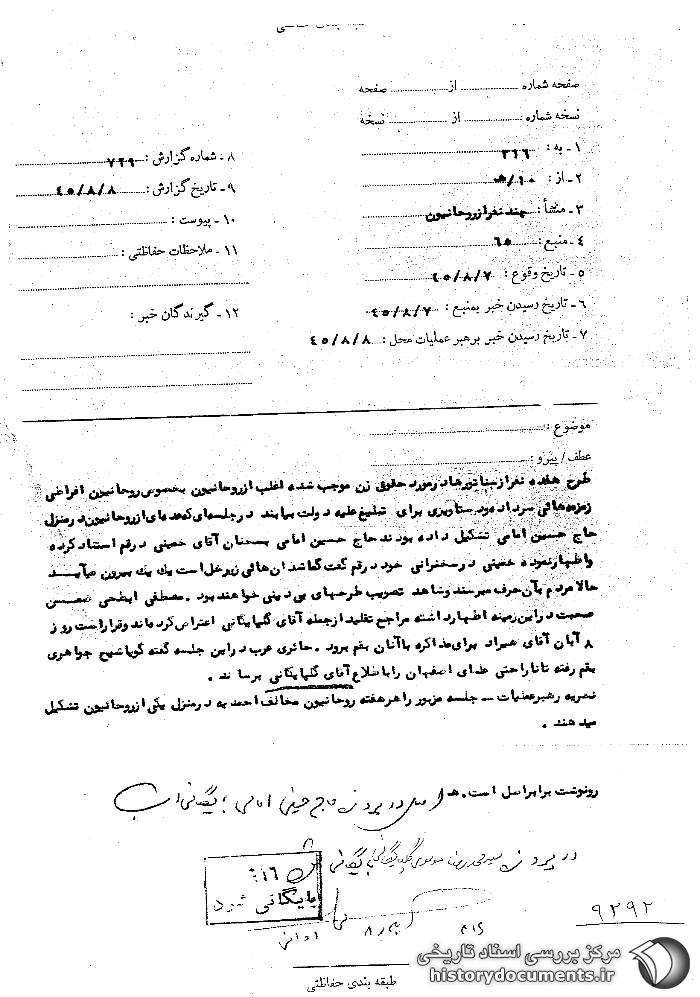 صفحه شماره ........ از ........ صفحه
نسخه شماره ........ از ........ نسخه
۱ـ به : ۳۱۶
۲ـ از : ۱۰/ه
۳ـ منشأ : چند نفر از روحانیون
۴ـ منبع : ۶۵
۵ـ تاریخ وقوع : ۴۵/۸/۷
۶ـ تاریخ رسیدن خبر بمنبع : ۴۵/۸/۷
۷ـ تاریخ رسیدن خبر برهبر عملیات محل : ۴۵/۸/۸
۸ـ شماره گزارش : ۷۲۹
۹ـ تاریخ گزارش : ۴۵/۸/۸
۱۰ـ پیوست :
۱۱ـ ملاحظات حفاظتی :
۱۲ـ گیرندگان خبر :
موضوع :
عطف/پیرو :
طرح هفده نفر از سناتورها در مورد حقوق زن موجب شده اغلب از روحانیون بخصوص روحانیون افراطی
زمزمه‌هائی سر داده و دستاویزی برای تبلیغ علیه دولت بیابند در جلسه‌ای که عده‌ای از روحانیون در منزل
حاج حسین امامی تشکیل داده بودند حاج حسین امامی بسخنان آقای خمینی در قم استناد کرده
و اظهار نموده خمینی در سخنرانی خود در قم گفت گماشتگان‌هائی زیر خل است یک یک بیرون میآیند
حالا مردم بآن حرف میرسند و شاهد تصویب طرحهای بی دینی خواهند بود . مصطفی ابطحی ضمن
صحبت در این زمینه اظهار داشته مراجع تقلید از جمله آقای گلپایگانی اعتراض کرده‌اند و قرار است روز
۸ آبان آقای هیراد برای مذاکره با آنان بقم برود . حائری عرب در این جلسه گفته گویا شیخ جواهری
بقم رفته تا ناراحتی علمای اصفهان را باطلاع آقای گلپایگانی برساند .
نظریه رهبر عملیات ـ جلسه مزبور را هر هفته روحانیون مخالف احمدیه در منزل یکی از روحانیون تشکیل
میدهند .
رونوشت برابر اصل است . ه
اصل در پرونده حاج حسین امامی بایگانی است
در پرونده سید محمد رضا موسوی گلپایگانی بایگانی
۳۱۶
بایگانی شود
۹۲۹۲
طبقه بندی حفاظتی
مرکز بررسی اسناد تاریخی
historydocuments.ir